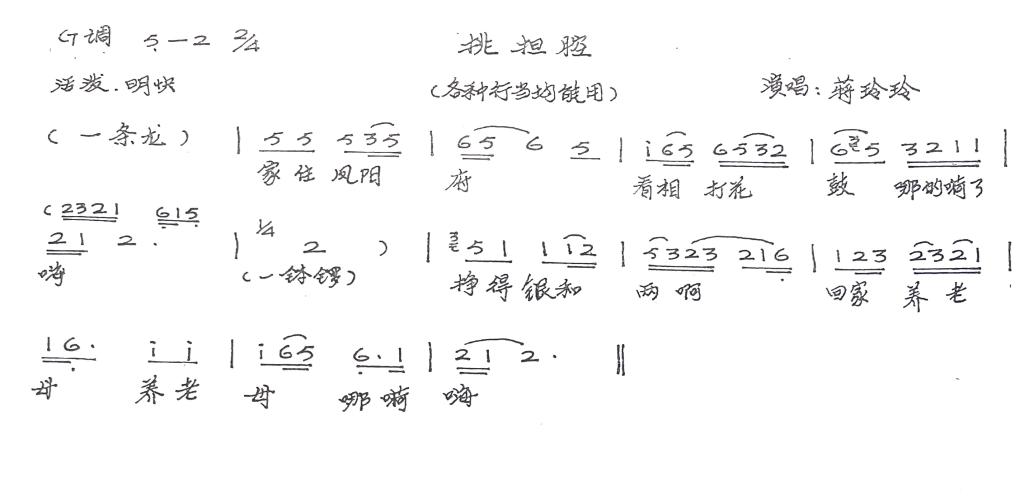 G调 5—2 2/4 挑担腔
活泼.明快 (各种行当均能用) 演唱：蒋玲玲
(一条龙) | 5 5 5 3 5 | 6 5 6 5 | i 6 5 6 5 3 2 | 6 5 3 2 1 1 |
家住凤阳 府 看相 打花 鼓 哪的嗬了
(2321 615
2 1 2 . | 1/4 2 ) | 3 5 1 1 i 2 | 5 3 2 3 2 1 6 | 1 2 3 2 3 2 1 |
嗨 (一钵锣) 挣得银和 两啊 回家 养老
1 6 . i i | i 6 5 6 . 1 | 2 1 2 . ‖
母 养老 母 哪嗬 嗨